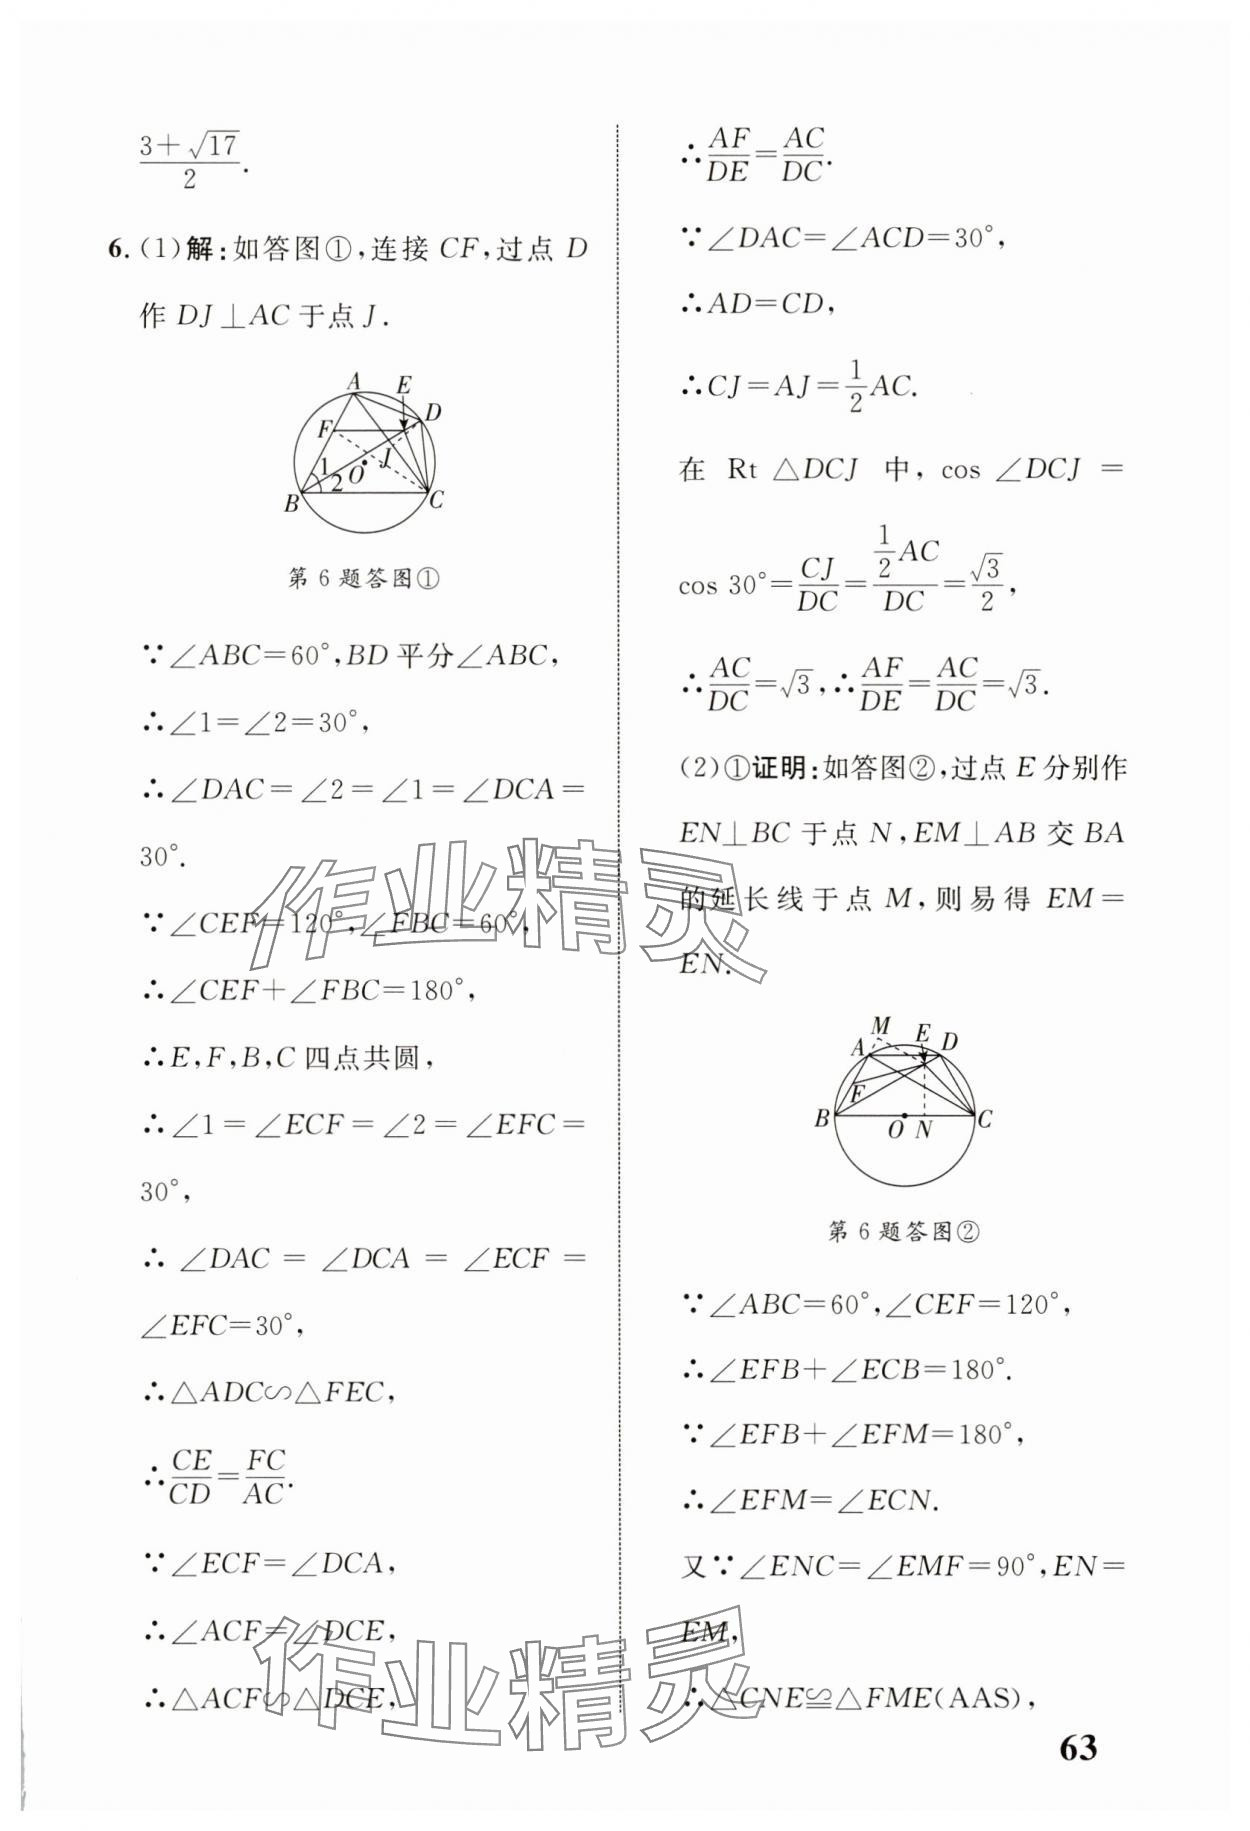 (3+√17)/2.
6. (1)解:如答图①,连接 CF,过点 D
作 DJ⊥AC 于点 J.
A E
D
F
J
1
2 O
B C
第 6 题答图①
∵∠ABC=60°,BD 平分∠ABC,
∴∠1=∠2=30°,
∴∠DAC=∠2=∠1=∠DCA=
30°.
∵∠CEF=120°,∠FBC=60°,
∴∠CEF+∠FBC=180°,
∴E,F,B,C 四点共圆,
∴∠1=∠ECF=∠2=∠EFC=
30°,
∴∠DAC=∠DCA=∠ECF=
∠EFC=30°,
∴△ADC∽△FEC,
∴CE/CD=FC/AC.
∵∠ECF=∠DCA,
∴∠ACF=∠DCE,
∴△ACF∽△DCE,
∴AF/DE=AC/DC.
∵∠DAC=∠ACD=30°,
∴AD=CD,
∴CJ=AJ=1/2AC.
在 Rt△DCJ 中,cos∠DCJ=
cos 30°=CJ/DC=(1/2AC)/DC=√3/2,
∴AC/DC=√3,∴AF/DE=AC/DC=√3.
(2)①证明:如答图②,过点 E 分别作
EN⊥BC 于点 N,EM⊥AB 交 BA
的延长线于点 M,则易得 EM=
EN.
M E D
A
F
B C
O N
第 6 题答图②
∵∠ABC=60°,∠CEF=120°,
∴∠EFB+∠ECB=180°.
∵∠EFB+∠EFM=180°,
∴∠EFM=∠ECN.
又∵∠ENC=∠EMF=90°,EN=
EM,
∴△CNE≌△FME(AAS),
作业精灵
作业精灵
63